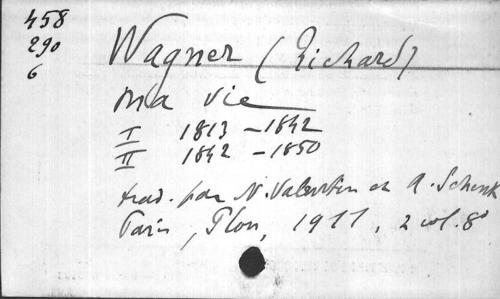 458
290
6
Wagner (Richard)
Ma vie
I 1813 - 1842
II 1842 - 1850
trad. par N. Valentin et A. Schenk
Paris, Plon, 1911, 2 vol. 8°